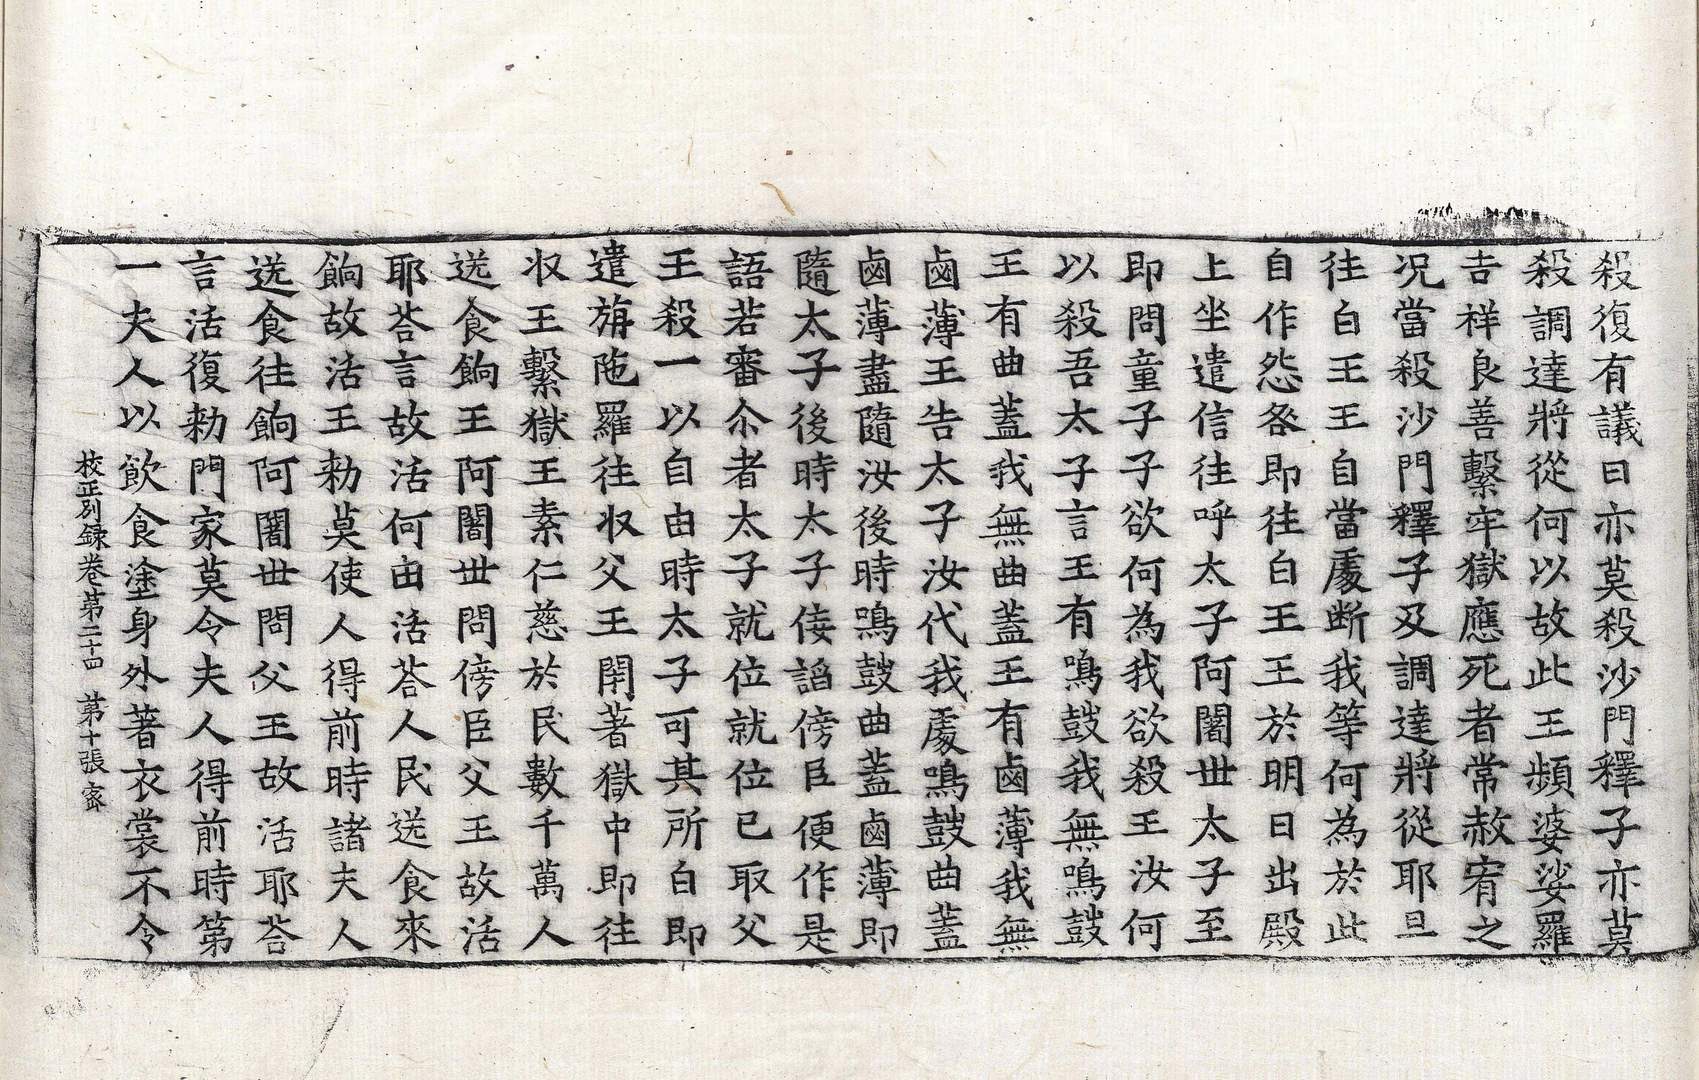 殺復有議曰亦莫殺沙門釋子亦莫
殺調達將從何以故此王頻婆娑羅
吉祥良善繫牢獄應死者常赦宥之
况當殺沙門釋子及調達將從耶旦
往白王王自當䖏断我等何爲於此
自作怨咎即往白王王於明日出殿
上坐遣信往呼太子阿闍世太子至
即問童子子欲何為我欲殺王汝何
以殺吾太子言王有鳴鼓我無鳴鼓
王有曲蓋我無曲蓋王有鹵薄我無
鹵薄王告太子汝代我䖏鳴鼓曲蓋
鹵薄盡隨汝後時鳴鼓曲蓋鹵薄即
隨太子後時太子倿謟傍臣便作是
語若審尒者太子就位就位已取父
王殺一以自由時太子可其所白即
遣旃陁羅往收父王閇著獄中即往
收王繫獄王素仁慈於民數千萬人
送食餉王阿闍世問傍臣父王故活
耶荅言故活何由活荅人民送食來
餉故活王勑莫使人得前時諸夫人
送食往餉阿闍世問父王故活耶荅
言活復勑門家莫令夫人得前時第
一夫人以飲食塗身外著衣裳不令
校正別録卷第二十四　第十張　宻